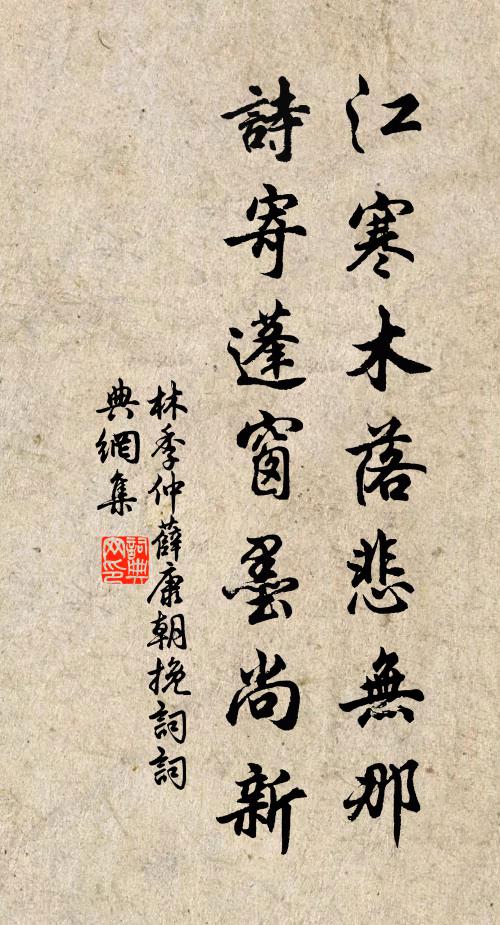 江寒木落悲無那
詩寄蓬窗墨尚新
林季仲薛康朝挽詞詞
典網集
詞典
网印